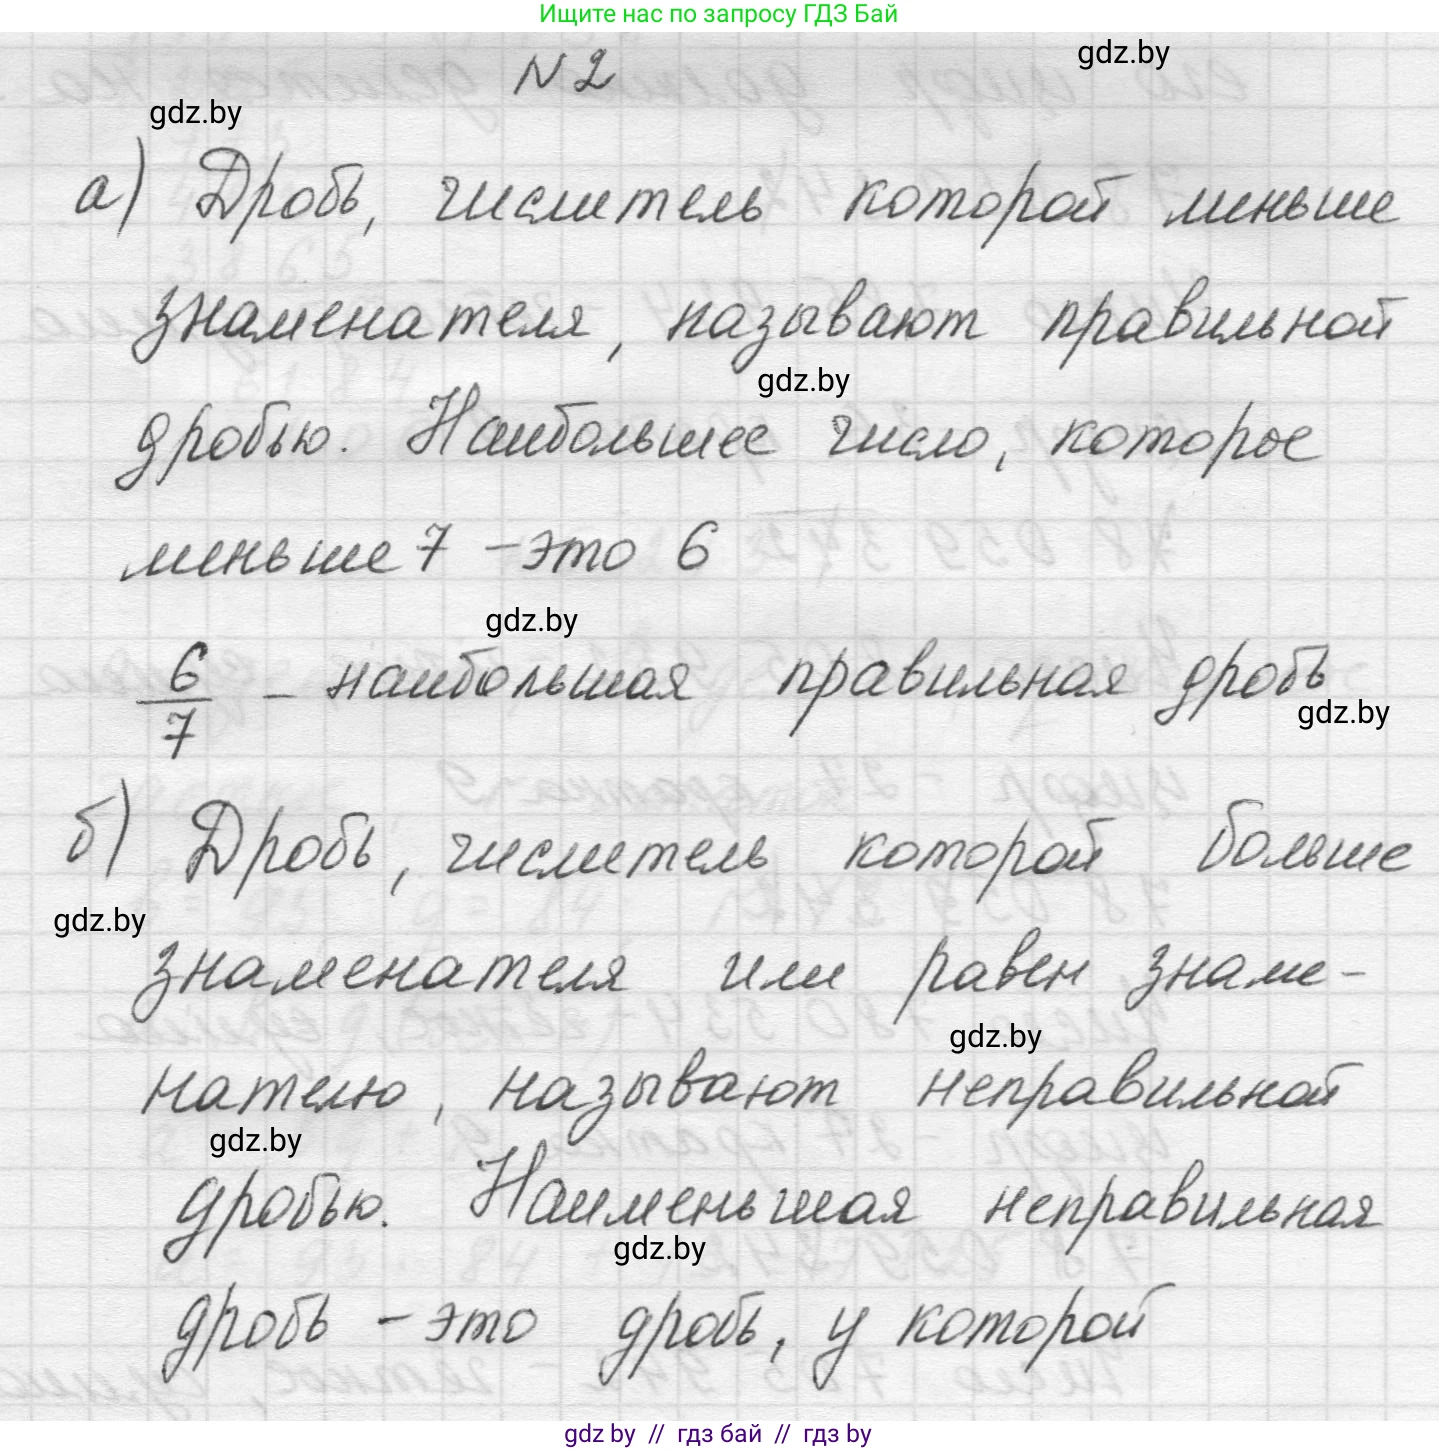 Ищите нас по запросу ГДЗ Бай
N 2
gdz.by
gdz.by
а) Дробь, числитель которой меньше
знаменателя, называют правильной
gdz.by
дробью. Наибольшее число, которое
меньше 7 – это 6
gdz.by
6/7 – наибольшая правильная дробь
gdz.by
б) Дробь, числитель которой больше
gdz.by
знаменателя или равен знаме-
gdz.by
нателю, называют неправильной
gdz.by
дробью. Наименьшая неправильная
gdz.by
дробь – это дробь, у которой
gdz by // гдз бай // гдз by